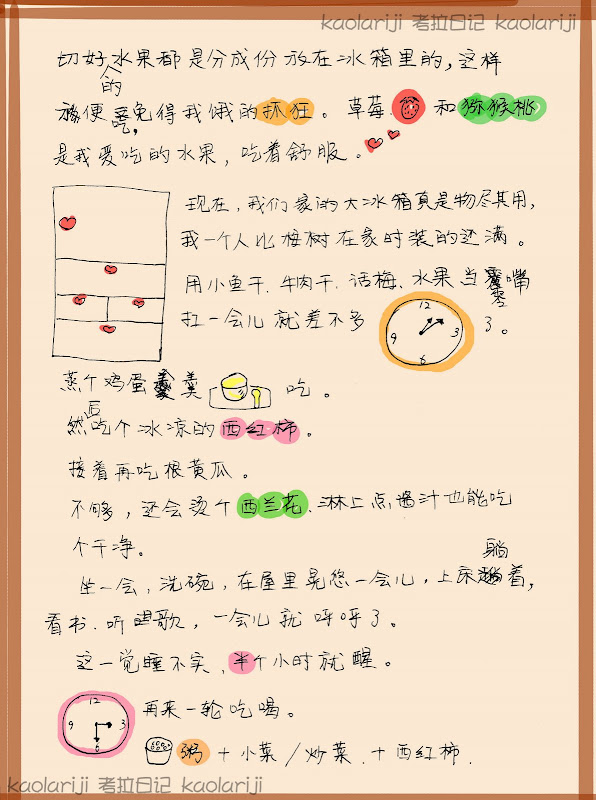 kaolariji 考拉日记 kaolariji
切好的水果都是分成份放在冰箱里的,这样
方便吃,免得我饿的抓狂。草莓 和猕猴桃
是我爱吃的水果,吃着舒服。
现在,我们家的大冰箱真是物尽其用,
我一个人比桉树在家时装的还满。
用小鱼干、牛肉干、话梅、水果当零嘴
扛一会儿就差不多 12 3 6 9 了。
蒸个鸡蛋羹 吃。
然后吃个冰凉的西红柿。
接着再吃根黄瓜。
不够,还会烫个西兰花、淋上点酱汁也能吃
个干净。
坐一会,洗碗,在屋里晃悠一会儿,上床躺着,
看书、听歌,一会儿就呼呼了。
这一觉睡不实,半个小时就醒。
12 3 6 9 再来一轮吃喝。
粥 + 小菜 / 炒菜 + 西红柿.
kaolariji 考拉日记 kaolariji